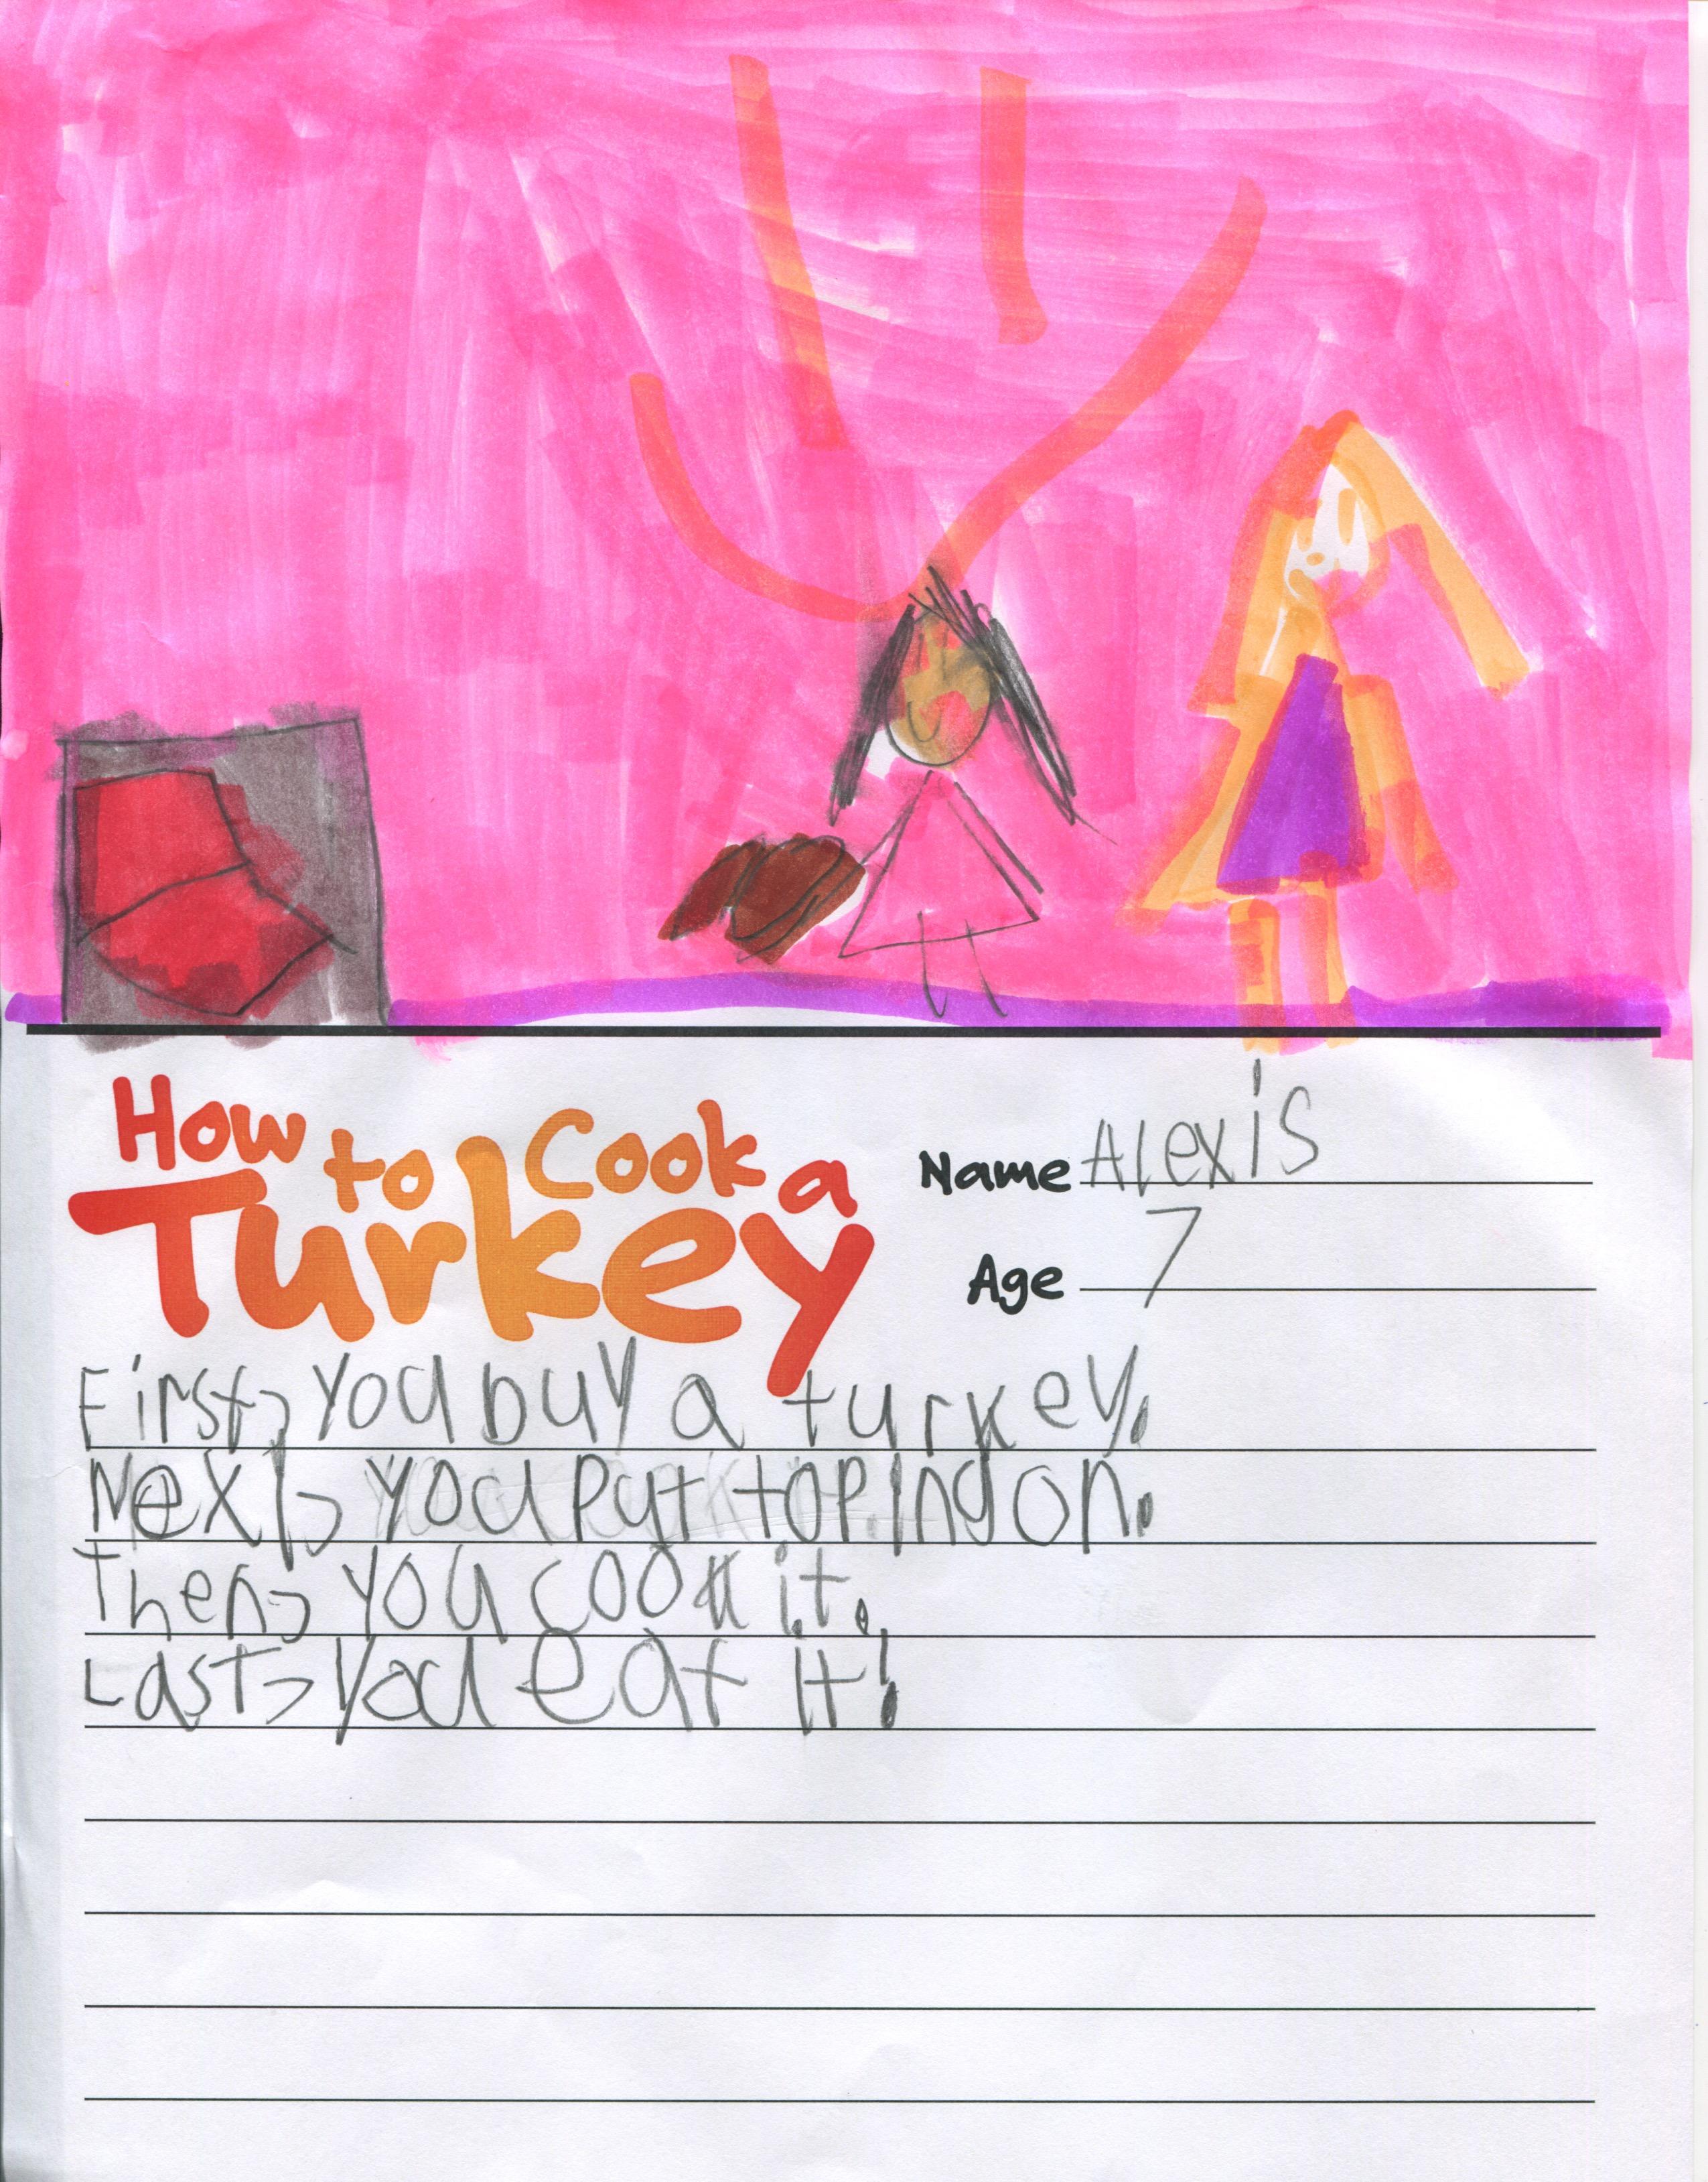 How to Cook a
Turkey
Name Alexis
Age 7
First, you buy a turkey.
Next, you put toping on.
Then, you cook it.
Last, you eat it!